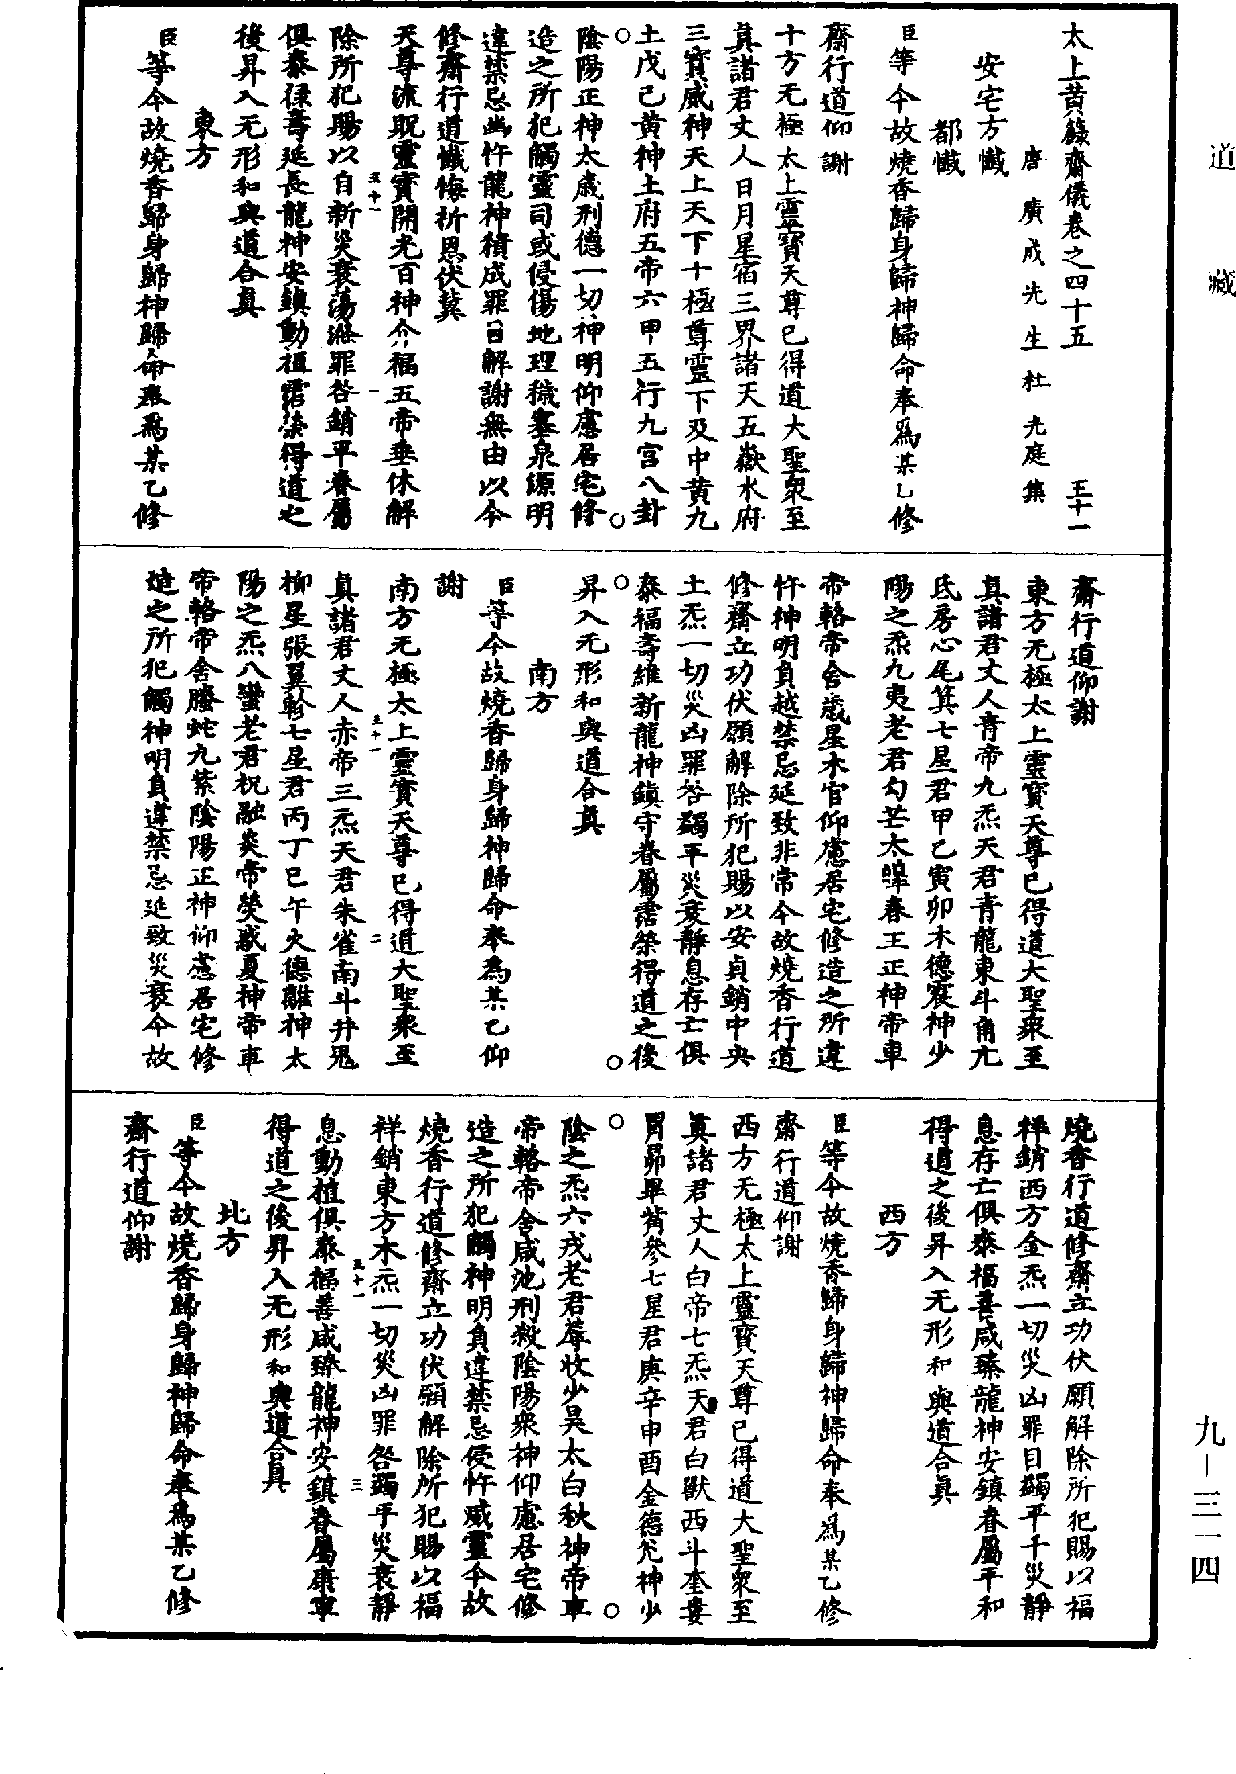 道藏
太上黃籙齋儀卷之四十五 王十一
唐廣成先生杜光庭集
安宅方懺
都懺
臣等今故燒香歸身歸神歸命奉爲某乙修
齋行道仰謝
十方无極太上靈寶天尊已得道大聖衆至
眞諸君丈人日月星宿三界諸天五嶽水府
三寶威神天上天下十極尊靈下及中黃九
土戊己黃神土府五帝六甲五行九宮八卦
陰陽正神太歲刑德一切神明仰慮居宅修
造之所犯觸靈司或侵傷地理穢塞泉源明
違禁忌幽忤龍神積成罪目解謝無由以今
修齋行道懺悔祈恩伏冀
天尊流貺靈寶開光百神介福五帝垂休解
除所犯賜以自新災衰蕩滌罪咎銷平眷屬
俱泰祿壽延長龍神安鎮動植霑榮得道之
後昇入无形和與道合眞
東方
臣等今故燒香歸身歸神歸命奉爲某乙修
齋行道仰謝
東方无極太上靈寶天尊已得道大聖衆至
眞諸君丈人青帝九炁天君青龍東斗角亢
氐房心尾箕七星君甲乙寅卯木德震神少
陽之炁九夷老君勾芒太皡春王正神帝車
帝輅帝舍歲星木官仰慮居宅修造之所違
忤神明負越禁忌延致非常今故燒香行道
修齋立功伏願解除所犯賜以安貞銷中央
土炁一切災凶罪咎蠲平災衰靜息存亡俱
泰福壽維新龍神鎮守眷屬霑榮得道之後
昇入无形和與道合眞
南方
臣等今故燒香歸身歸神歸命奉爲某乙仰
謝
南方无極太上靈寶天尊已得道大聖衆至
眞諸君丈人赤帝三炁天君朱雀南斗井鬼
柳星張翼軫七星君丙丁巳午火德離神太
陽之炁八蠻老君祝融炎帝熒惑夏神帝車
帝輅帝舍螣蛇九紫陰陽正神仰慮居宅修
造之所犯觸神明負違禁忌延致災衰今故
燒香行道修齋立功伏願解除所犯賜以福
祥銷西方金炁一切災凶罪目蠲平千災靜
息存亡俱泰福善咸臻龍神安鎮眷屬平和
得道之後昇入无形和與道合眞
西方
臣等今故燒香歸身歸神歸命奉爲某乙修
齋行道仰謝
西方无極太上靈寶天尊已得道大聖衆至
眞諸君丈人白帝七炁天君白獸西斗奎婁
胃昴畢觜參七星君庚辛申酉金德兌神少
陰之炁六戎老君蓐收少昊太白秋神帝車
帝輅帝舍咸池刑殺陰陽衆神仰慮居宅修
造之所犯觸神明負違禁忌侵忤威靈今故
燒香行道修齋立功伏願解除所犯賜以福
祥銷東方木炁一切災凶罪咎蠲平災衰靜
息動植俱泰福善咸臻龍神安鎮眷屬康寧
得道之後昇入无形和與道合眞
北方
臣等今故燒香歸身歸神歸命奉爲某乙修
齋行道仰謝
九－三一四